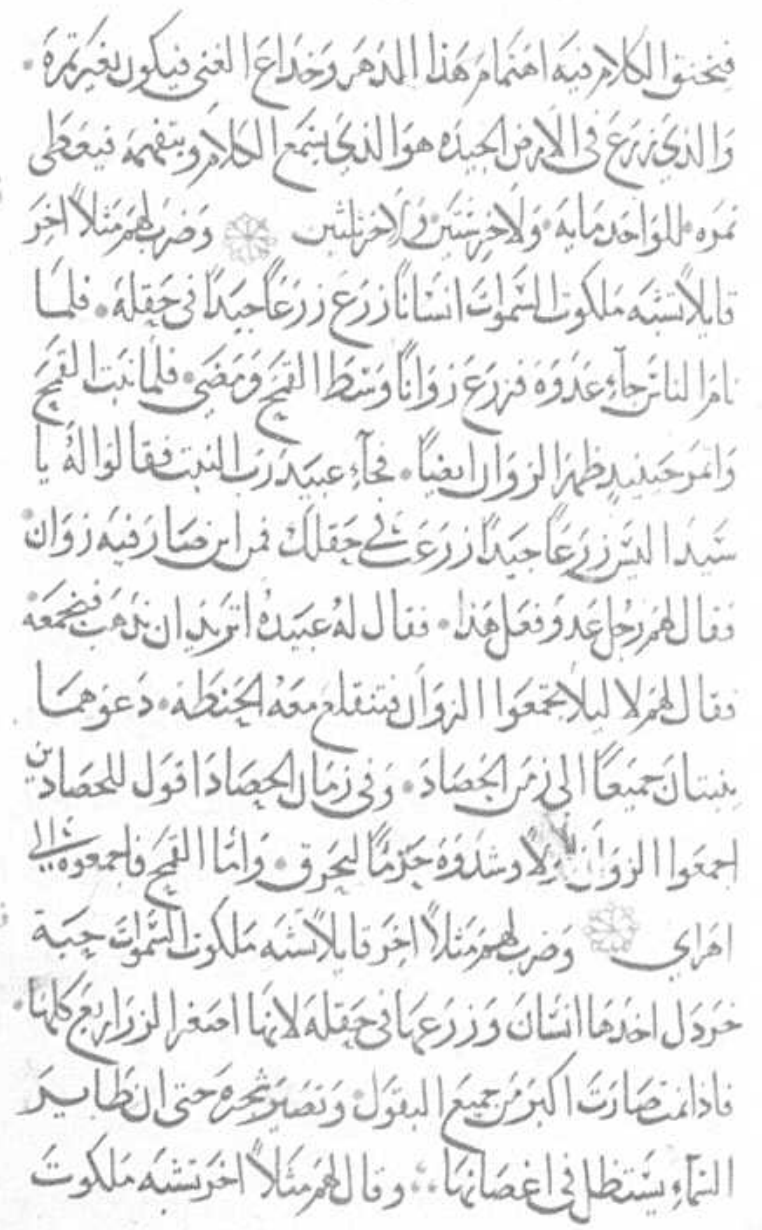 فيخنق الكلام فيه اهتمام هذا الدهر وخداع الغنى فيكون بغير ثمرة.
والذي زرع في الارض الجيده هو الذي يسمع الكلام ويتفهمه فيعطى
ثمره. للواحد مايه. ولاخر ستين. ولاخر ثلثين وضرب لهم مثلاً اخر
قايلاً تشبه ملكوت السموات انساناً زرع زرعاً جيداً في حقله. فلما
نام الناس جآء عدوه فزرع زواناً وسط القمح ومضى. فلما نبت القمح
واثمر حينيذٍ ظهر الزوان ايضاً. فجآء عبيد رب البيت فقالوا له يا
سيدنا اليس زرعاً جيداً زرعت في حقلك فمن اين صار فيه زوان.
فقال لهم رجل عدو فعل هذا. فقال له عبيده اتريد ان نذهب فنجمعه.
فقال لهم لا ليلا تجمعوا الزوان فتنقلع معه الحنطة. دعوهما
ينبتان جميعاً الى زمن الحصاد. وفي زمان الحصاد اقول للحصادين
اجمعوا الزوان اولاً وشدوه حزماً ليحرق. واما القمح فاجمعوه الى
اهراي وضرب لهم مثلاً اخر قايلاً تشبه ملكوت السموات حبة
خردل اخدها انسان وزرعها في حقله لانها اصغر الزراريع كلها.
فاذا نمت صارت اكبر من جميع البقول. وتصير شجره حتى ان طاير
السمآء يستظل في اغصانها. وقال لهم مثلاً اخر تشبه ملكوت